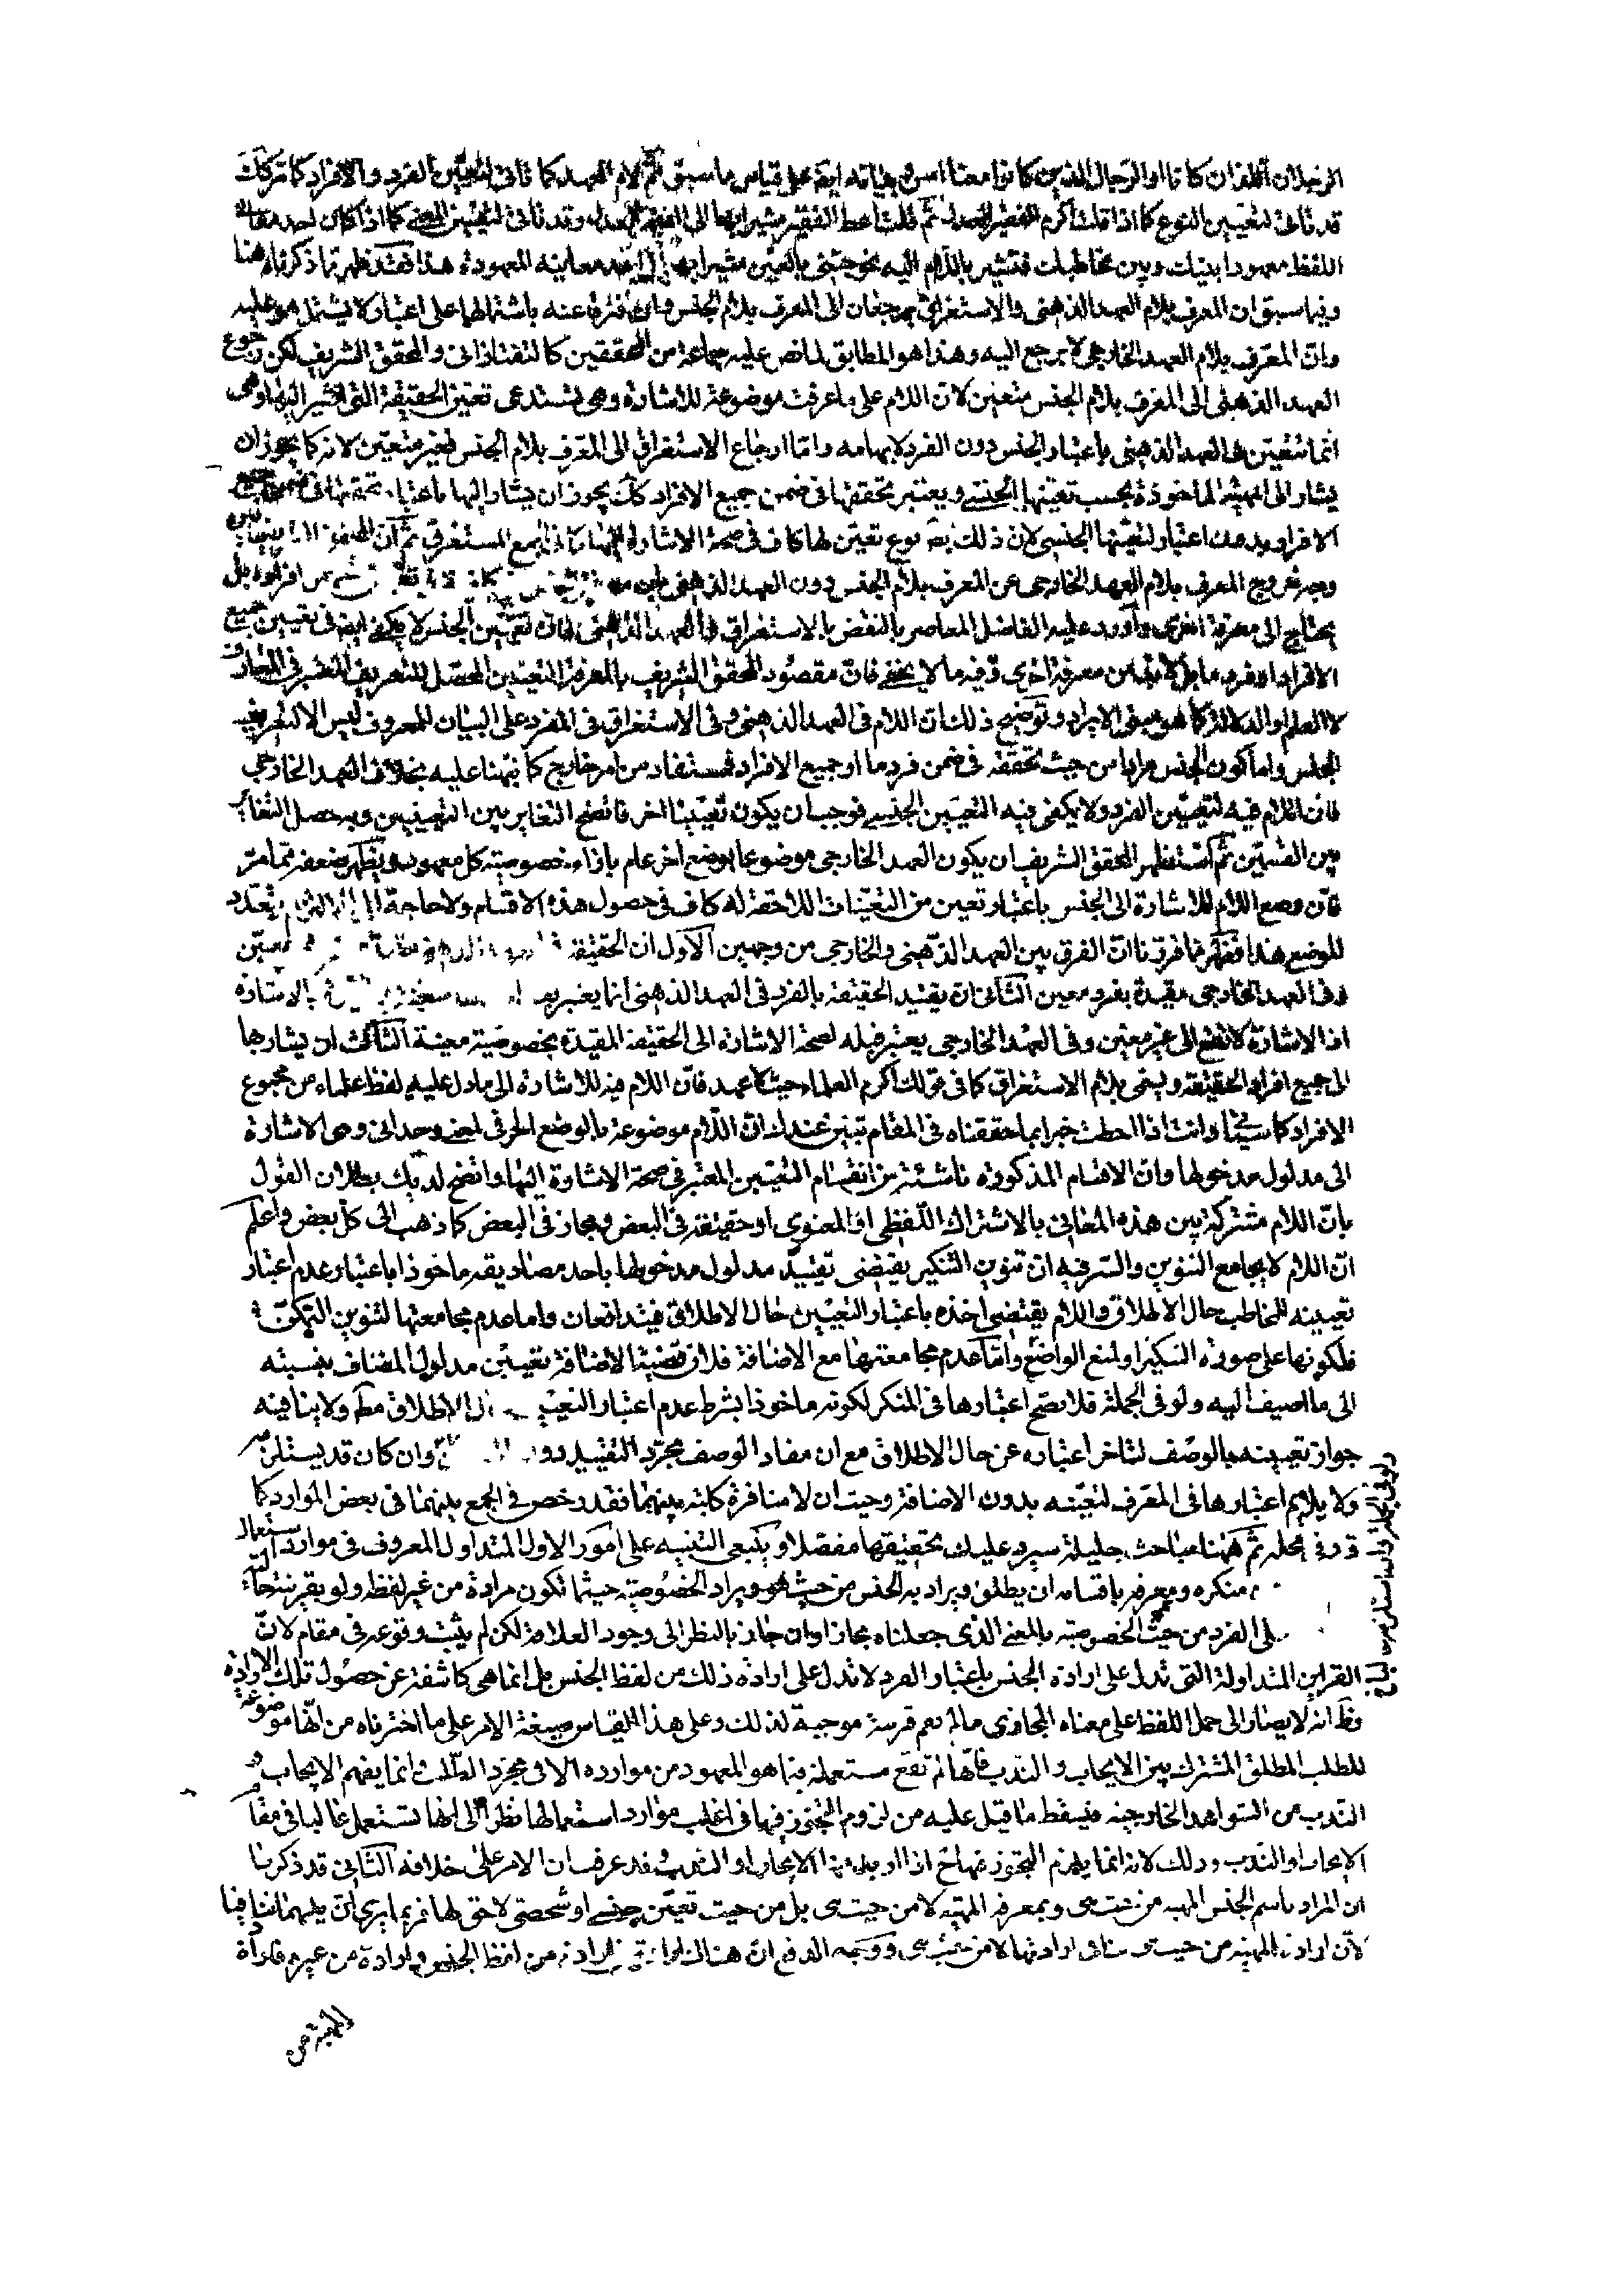 الرجلان اللذان كانا او الرجال الذين كانوا معنا امس وبياته ايضا على قياس ما سبق ثم لام العهد كما تاتى لتعيين الفرد والافراد كما مر كك
قد تاتى لتعيين النوع كما اذا قلت اكرم الفقير العدل ثم قلت اعط الفقير مشيرا بها الى الفقير العدل وقد تاتى لتعيين المعنى كما اذا كان احد معانى
اللفظ معهودا بينك وبين مخاطبك فتشير باللام اليه نحو جئنى بالعين مشيرا بها الى احد معانيه المعهودة هذا فقد ظهر مما ذكرناه هنا
وفيما سبق ان المعرف بلام العهد الذهنى والاستغراق يرجعان الى المعرف بلام الجنس وان افترقا عنه باشتمالهما على اعتبار لا يشتمل هو عليه
وان المعرف بلام العهد الخارجى لا يرجع اليه وهذا هو المطابق لما نص عليه جماعة من المحققين كالتفتازانى والمحقق الشريف لكن رجوع
العهد الذهنى الى المعرف بلام الجنس متعين لان اللام على ما عرفت موضوعة للاشارة وهى تستدعى تعيين الحقيقة التى اشير اليها وهى
انما تتعين فى العهد الذهنى باعتبار الجنس دون الفرد لابهامه واما ارجاع الاستغراق الى المعرف بلام الجنس فغير متعين لانه كما يجوز ان
يشار الى المهية الماخوذة بحسب تعينها الجنسى ويعتبر تحققها فى ضمن جميع الافراد كك يجوز ان يشار اليها باعتبار تحققها فى ضمن جميع
الافراد بدون اعتبار لتعينها الجنسى لان ذلك ايضا نوع تعين لها كاف فى صحة الاشارة اليها كما فى الجمع المستغرق ثم ان المحقق الشريف
وجه خروج المعرف بلام العهد الخارجى عن المعرف بلام الجنس دون العهد الذهنى بان معرفة الجنس غير كافية فى تعيين شىء من افراده بل
يحتاج الى معرفة اخرى واورد عليه الفاضل المعاصر بالنقض بالاستغراق والعهد الذهنى فان تعيين الجنس لا يكفى ايضا فى تعيين جميع
الافراد او فرد ما بل لا بد من معرفة اخرى وفيه ما لا يخفى فان مقصود المحقق الشريف بالمعرفة التعيين المحصل للتعريف المعتبر فى المعارف
لا العلم او الدلالة كما هو مبنى الايراد وتوضيح ذلك ان اللام فى العهد الذهنى وفى الاستغراق فى المفرد على البيان المعروف ليس الا لتعريف
الجنس واما كون الجنس مرادا من حيث تحققه فى ضمن فرد ما او جميع الافراد فمستفاد من امر خارج كما نبهنا عليه بخلاف العهد الخارجى
فان اللام فيه لتعيين الفرد ولا يكفى فيه التعيين الجنسى فوجب ان يكون تعيينا اخر فاتضح التغاير بين التعيينين وبه حصل التغاير
بين القسمين ثم استظهر المحقق الشريف ان يكون العهد الخارجى موضوعا بوضع اخر عام بازاء خصوصية كل معهود ويظهر ضعفه مما مر
فان وضع اللام للاشارة الى الجنس باعتبار تعين من التعينات اللاحقة له كاف فى حصول هذه الاقسام ولا حاجة الى التزام تعدد
الوضع هذا فظهر مما قررنا ان الفرق بين العهد الذهنى والخارجى من وجهين الاول ان الحقيقة
وفى العهد الخارجى مقيدة بفرد معين الثانى ان تقييد الحقيقة بالفرد فى العهد الذهنى انما يعتبر بعد بالاشارة
اذ الاشارة لا تقع الى غير معين وفى العهد الخارجى يعتبر قبله لصحة الاشارة الى الحقيقة المقيدة بخصوصية معينة الثالث ان يشار بها
الى جميع افراد الحقيقة ويسمى بلام الاستغراق كما فى قولك اكرم العلماء حيث لا عهد فان اللام فيه للاشارة الى ما دل عليه لفظ علماء من مجموع
الافراد كما سيجئ وانت اذا احطت خبرا بما حققناه فى المقام تبين عندك ان اللام موضوعة بالوضع الحرفى لمعنى وحدانى وهى الاشارة
الى مدلول مدخولها وان الاقسام المذكورة ناشئة من انقسام التعيين المعتبر فى صحة الاشارة اليها واتضح لديك بطلان القول
بان اللام مشتركة بين هذه المعانى بالاشتراك اللفظى او المعنوى او حقيقة فى البعض ومجاز فى البعض كما ذهب الى كل بعض واعلم
ان اللام لا يجامع التنوين والسر فيه ان تنوين التنكير يقتضى تقييد مدلول مدخولها باحد مصاديقه ماخوذا باعتبار عدم اعتبار
تعيينه للمخاطب حال الاطلاق واللام يقتضى اخذه باعتبار التعيين حال الاطلاق فيتدافعان واما عدم مجامعتها لتنوين التمكن
فلكونها على صورة التنكير او لمنع الواضع واما عدم مجامعتها مع الاضافة فلان قضية الاضافة تعيين مدلول المضاف بنسبته
الى ما اضيف اليه ولو فى الجملة فلا يصح اعتبارها فى المنكر لكونه ماخوذا بشرط عدم اعتبار التعيين حال الاطلاق مط ولا ينافيه
جواز تعيينه بالوصف لتاخر اعتباره عن حال الاطلاق مع ان مفاد الوصف مجرد التقييد دون وان كان قد يستلزمه
ولا يلايم اعتبارها فى المعرف لتعينه بدون الاضافة وحيث ان لا منافرة كلية بينهما فقد رخص فى الجمع بينهما فى بعض الموارد كما
قرر فى محله ثم ههنا مباحث جليلة سيرد عليك تحقيقها مفصلا وينبغى التنبيه على امور الاول المتداول المعروف فى موارد استعمال
منكره ومعرفه باقسامه ان يطلق ويراد به الجنس من حيث هو ويراد الخصوصية حيثما تكون مرادة من غير لفظه ولو بقرينة حال
على الفرد من حيث الخصوصية بالمعنى الذى جعلناه مجازا وان جاز بالنظر الى وجود العلاقة لكن لم يثبت وقوعه فى مقام لان
القراين المتداولة التى تدل على ارادة الجنس باعتبار الفرد لا تدل على ارادة ذلك من لفظ الجنس بل انما هى كاشفة عن حصول تلك الارادة
وظ انه لا يصار الى حمل اللفظ على معناه المجازى ما لم تقم قرينة موجبة لذلك وعلى هذا القياس صيغة الامر على ما اخترناه من انها موضوعة
للطلب المطلق المشترك بين الايجاب والندب فانها لم تقع مستعملة فيما هو المعهود من موارده الا فى مجرد الطلب وانما يفهم الايجاب و
الندب من الشواهد الخارجية فيسقط ما قيل عليه من لزوم التجوز فيها فى اغلب موارد استعمالها نظرا الى انها تستعمل غالبا فى مقام
الايجاب او الندب وذلك لانه انما يلزم التجوز فيها ح اذا اريد بها الايجاب او الندب وقد عرفت ان الامر على خلافه الثانى قد ذكرنا
ان المراد باسم الجنس المهية من حيث هى وبمعرفه المهية لا من حيث هى بل من حيث تعين جنسى او شخصى لاحق لها فربما يرى ان بينهما تنافيا
لان ارادة المهية من حيث هى تنافى ارادتها لا من حيث هى ووجه الدفع ان هناك ارادتين ارادة من لفظ الجنس وارادة من غيره فارادة
المهية من